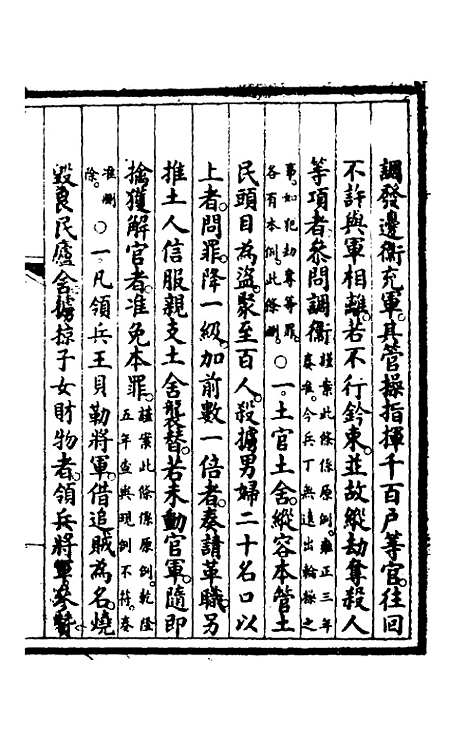 調發邊衞充軍其管操指揮千百戶等官往回
不許與軍相離若不行鈐束並故縱劫奪殺人
等項者參問調衞謹案此條係原例雍正三年
奏准今兵丁無遠出輪操之
事如犯劫奪等罪
各有本例此條刪○一土官土舍縱容本管土
民頭目為盜聚至百人殺擄男婦二十名口以
上者問罪降一級加前數一倍者奏請革職另
推土人信服親支土舍襲替若未動官軍隨即
擒獲解官者准免本罪謹案此條係原例乾隆
五年查與現例不符奏
准刪
除○一凡領兵王貝勒將軍借追賊為名燒
毀良民廬舍擄掠子女財物者領兵將軍參贊